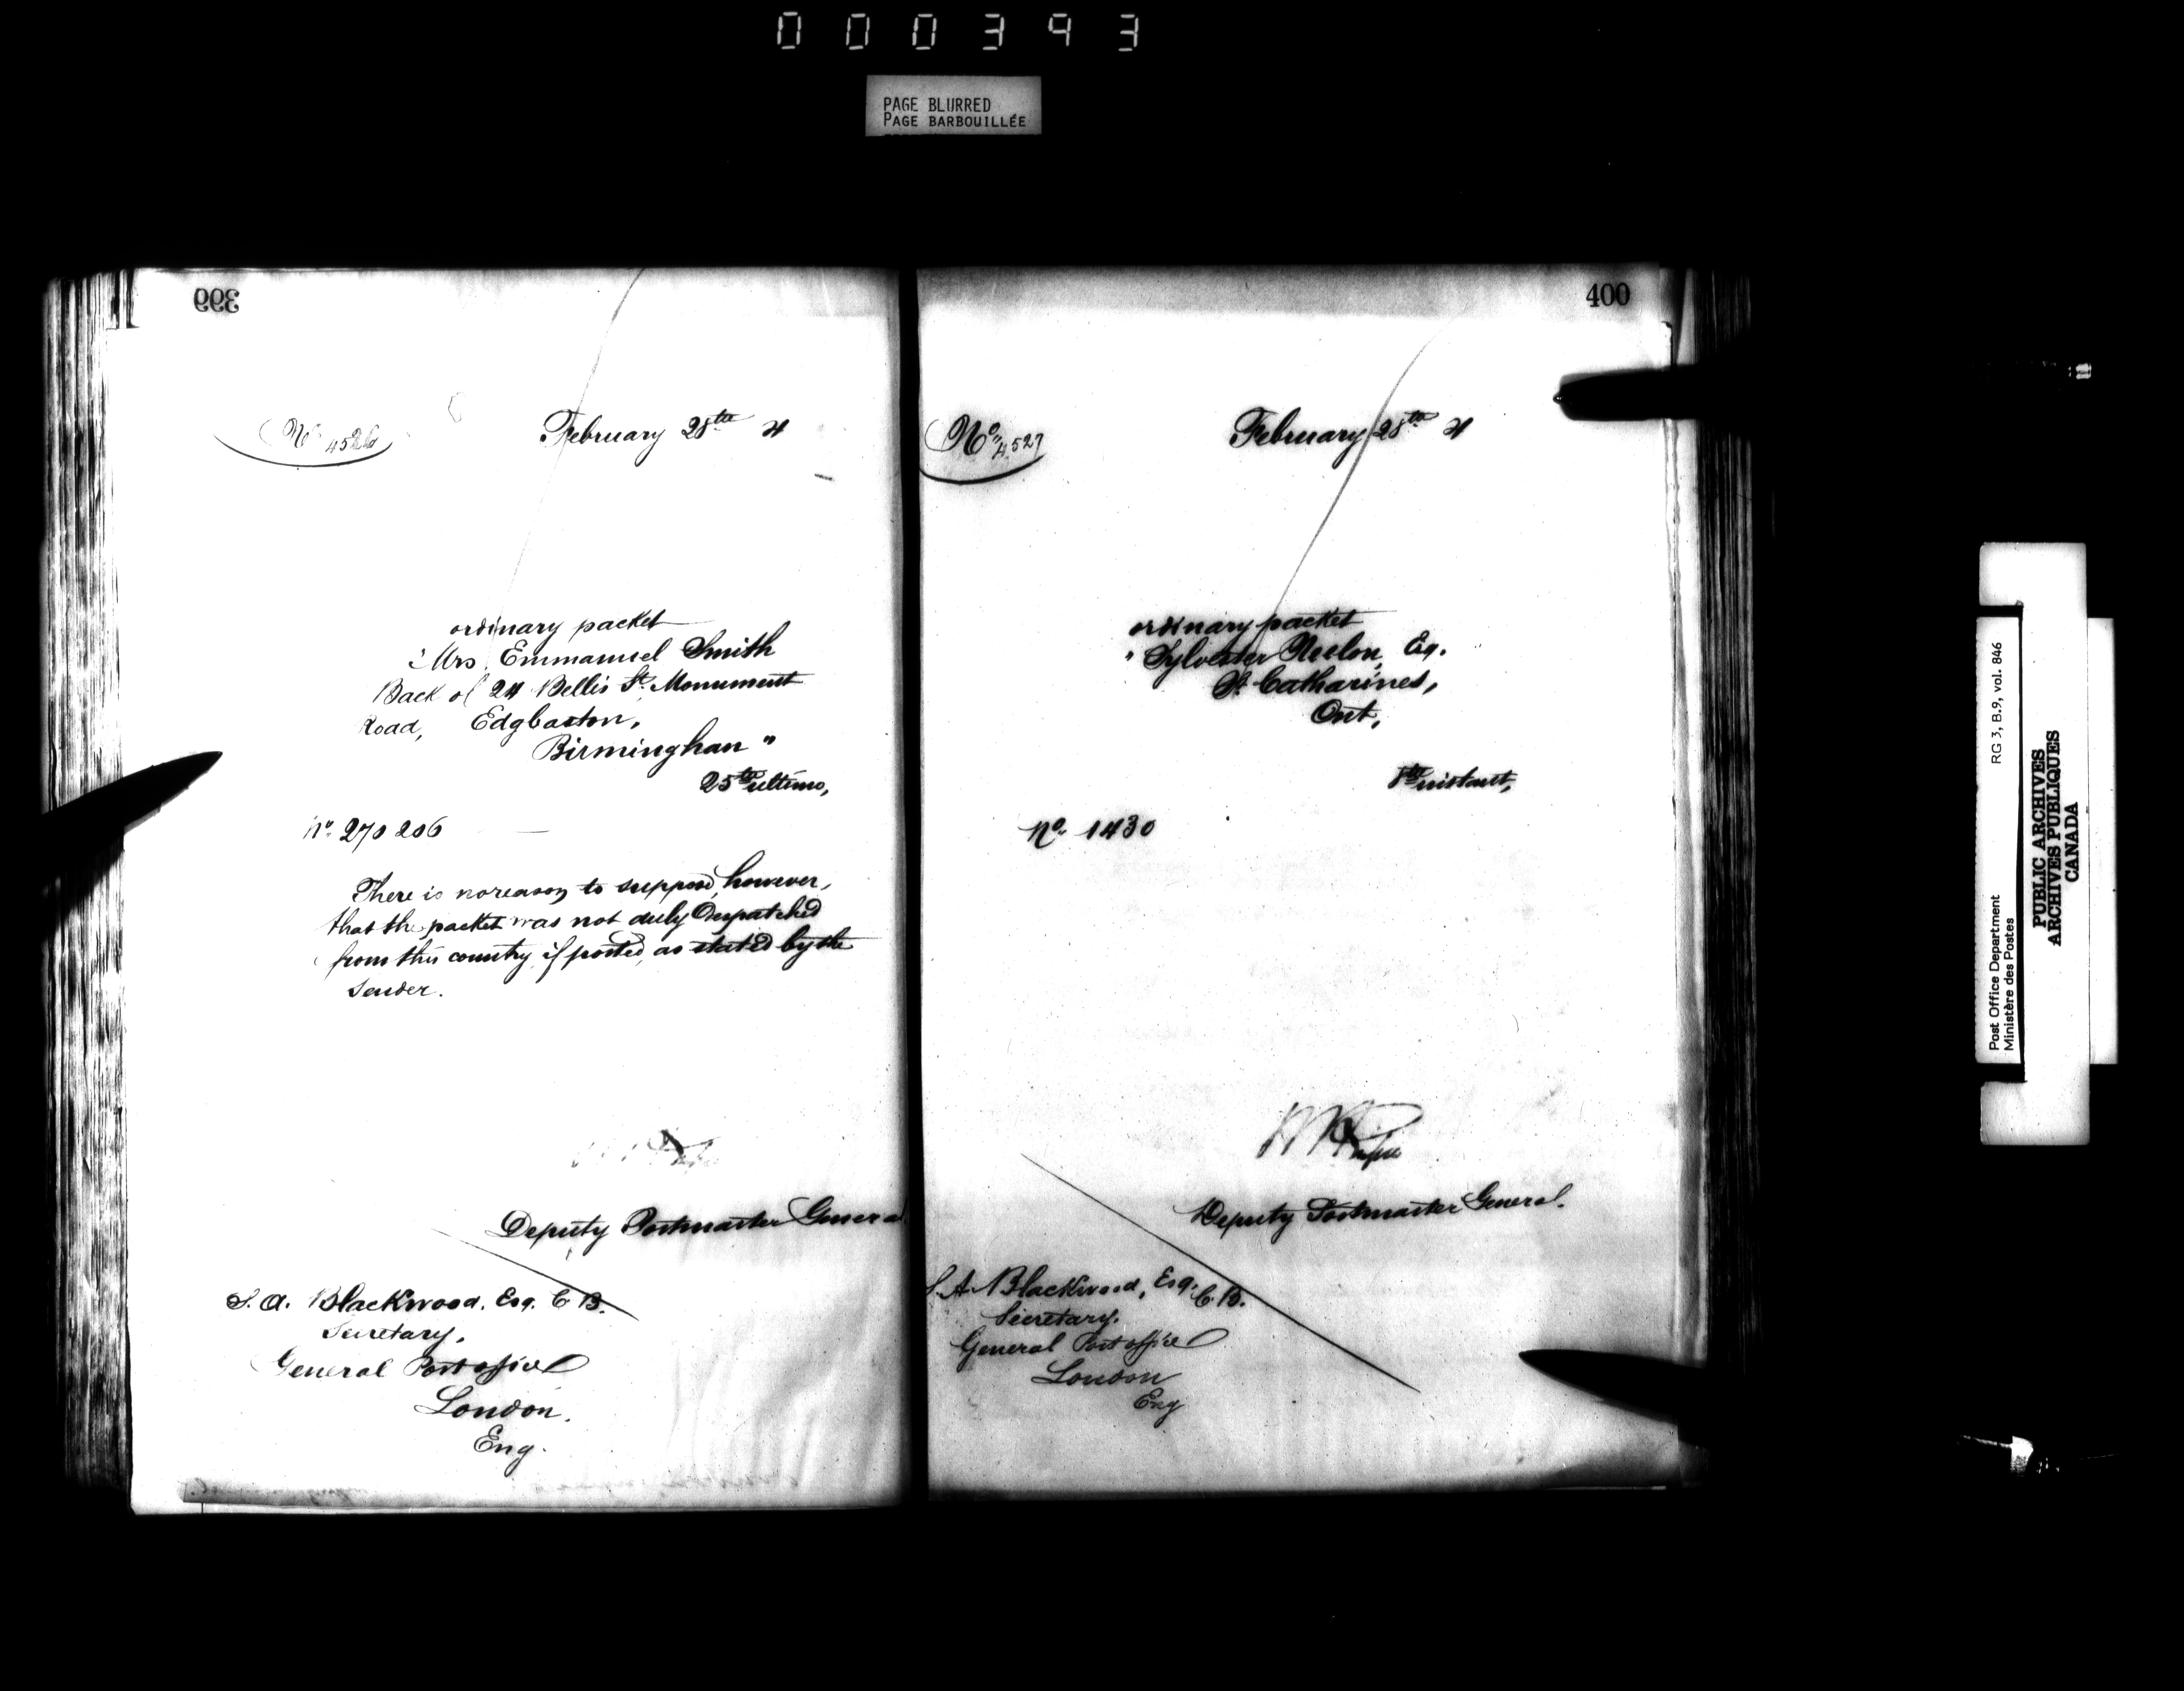 000393
PAGE BLURRED
PAGE BARBOUILLÉE
399
No 4526
February 28th 4
ordinary packet
"Mrs. Emmanuel Smith
Back of 24 Bellis St. Monument
Road, Edgbaston,
Birmingham"
25th ultimo,
No. 270206
There is no reason to suppose, however,
that the packet was not duly Despatched
from this country, if posted, as stated by the
sender.
Deputy Postmaster General
S. A. Blackwood, Esq. C.B.
Secretary,
General Post office
London.
Eng.
400
No. 4527
February 28th 4
ordinary packet
"Sylvester Neelon, Esq.
St. Catharines,
Ont,
8th instant,
No. 1430
Deputy Postmaster General.
S. A. Blackwood, Esq. C.B.
Secretary.
General Post office
London
Eng
Post Office Department
Ministère des Postes
RG 3, B.9, vol. 846
PUBLIC ARCHIVES
ARCHIVES PUBLIQUES
CANADA